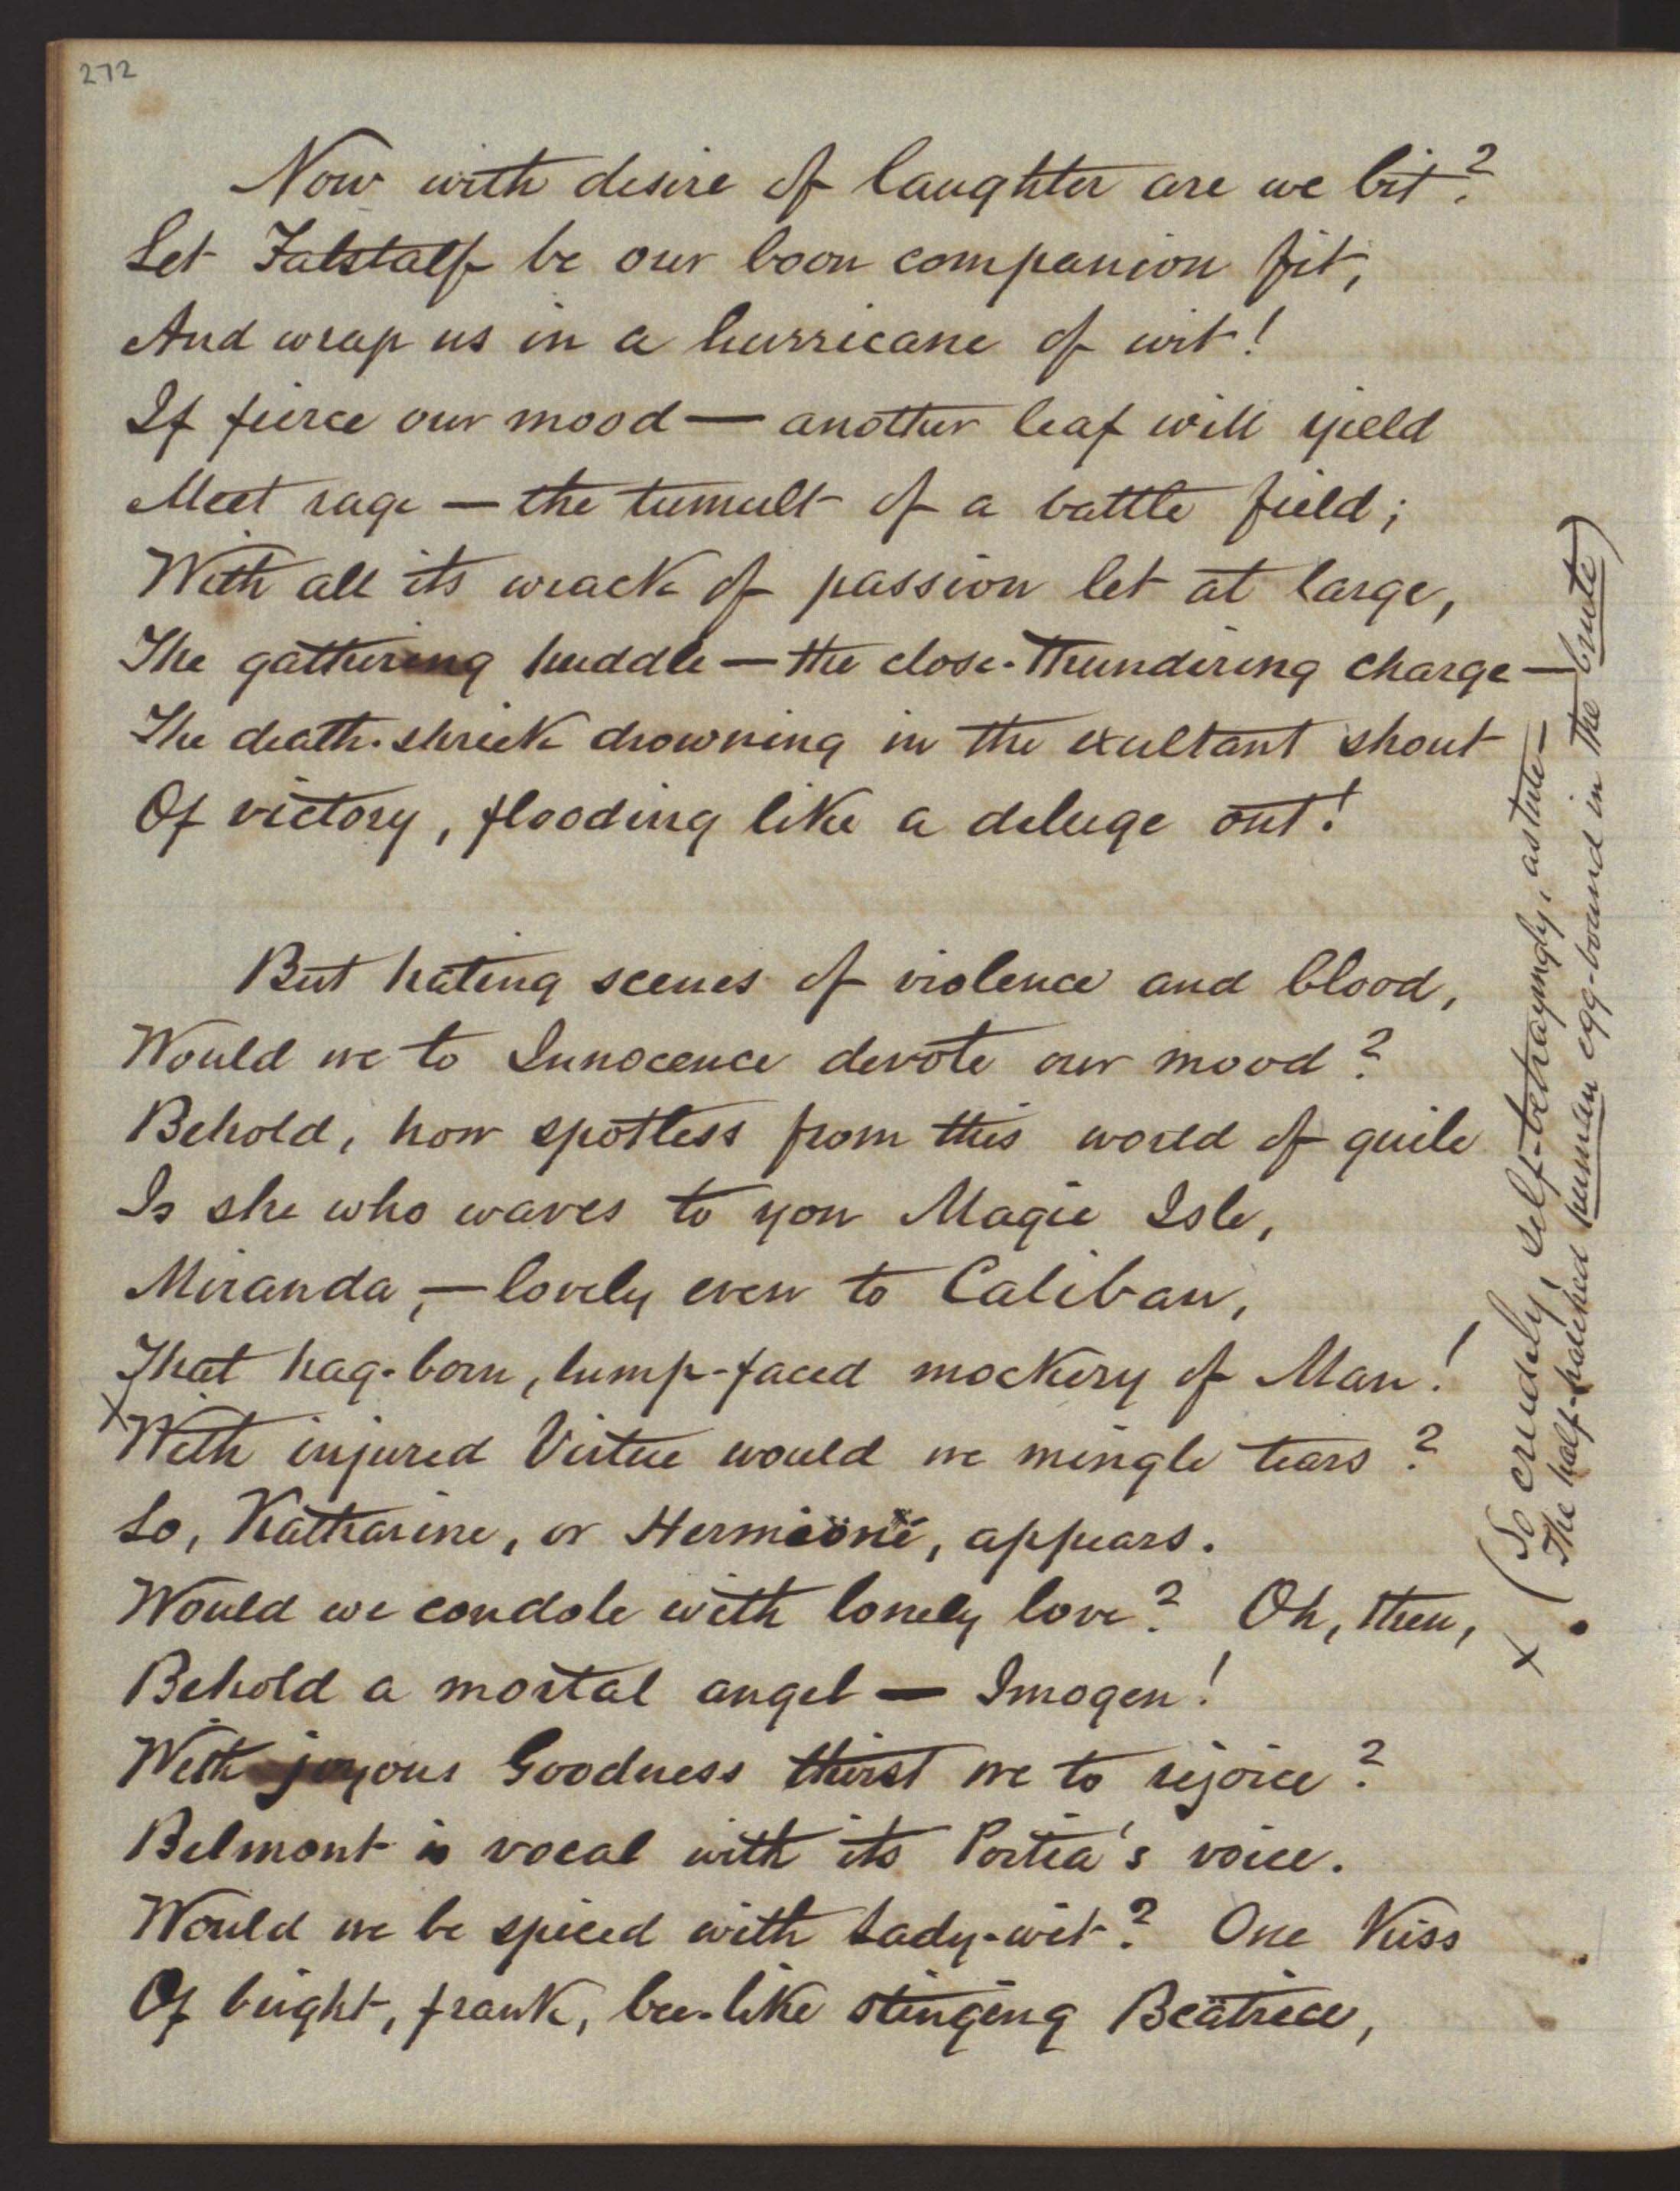 272
Now with desire of laughter are we bit?
Let Falstaff be our boon companion fit,
And wrap us in a hurricane of wit!
If fierce our mood — another leaf will yield
Meet rage — the tumult of a battle field;
With all its wrack of passion let at large,
The gathering huddle — the close-thundering charge —
The death-shriek drowning in the exultant shout
Of victory, flooding like a deluge out!
But hating scenes of violence and blood,
Would we to Innocence devote our mood?
Behold, how spotless from this world of guile
Is she who waves to yon Magic Isle,
Miranda, — lovely even to Caliban,
That hag-born, lump-faced mockery of Man!
x With injured Virtue would we mingle tears?
Lo, Katharine, or Hermionë, appears.
Would we condole with lonely love? Oh, then,
Behold a mortal angel — Imogen!
With joyous Goodness thirst we to rejoice?
Belmont is vocal with its Portia's voice.
Would we be spiced with Lady-wit? One Kiss
Of bright, frank, bee-like stinging Beätrice,
x (So crudely, self-betrayingly, astute —
The half-hatched human egg-bound in the brute)